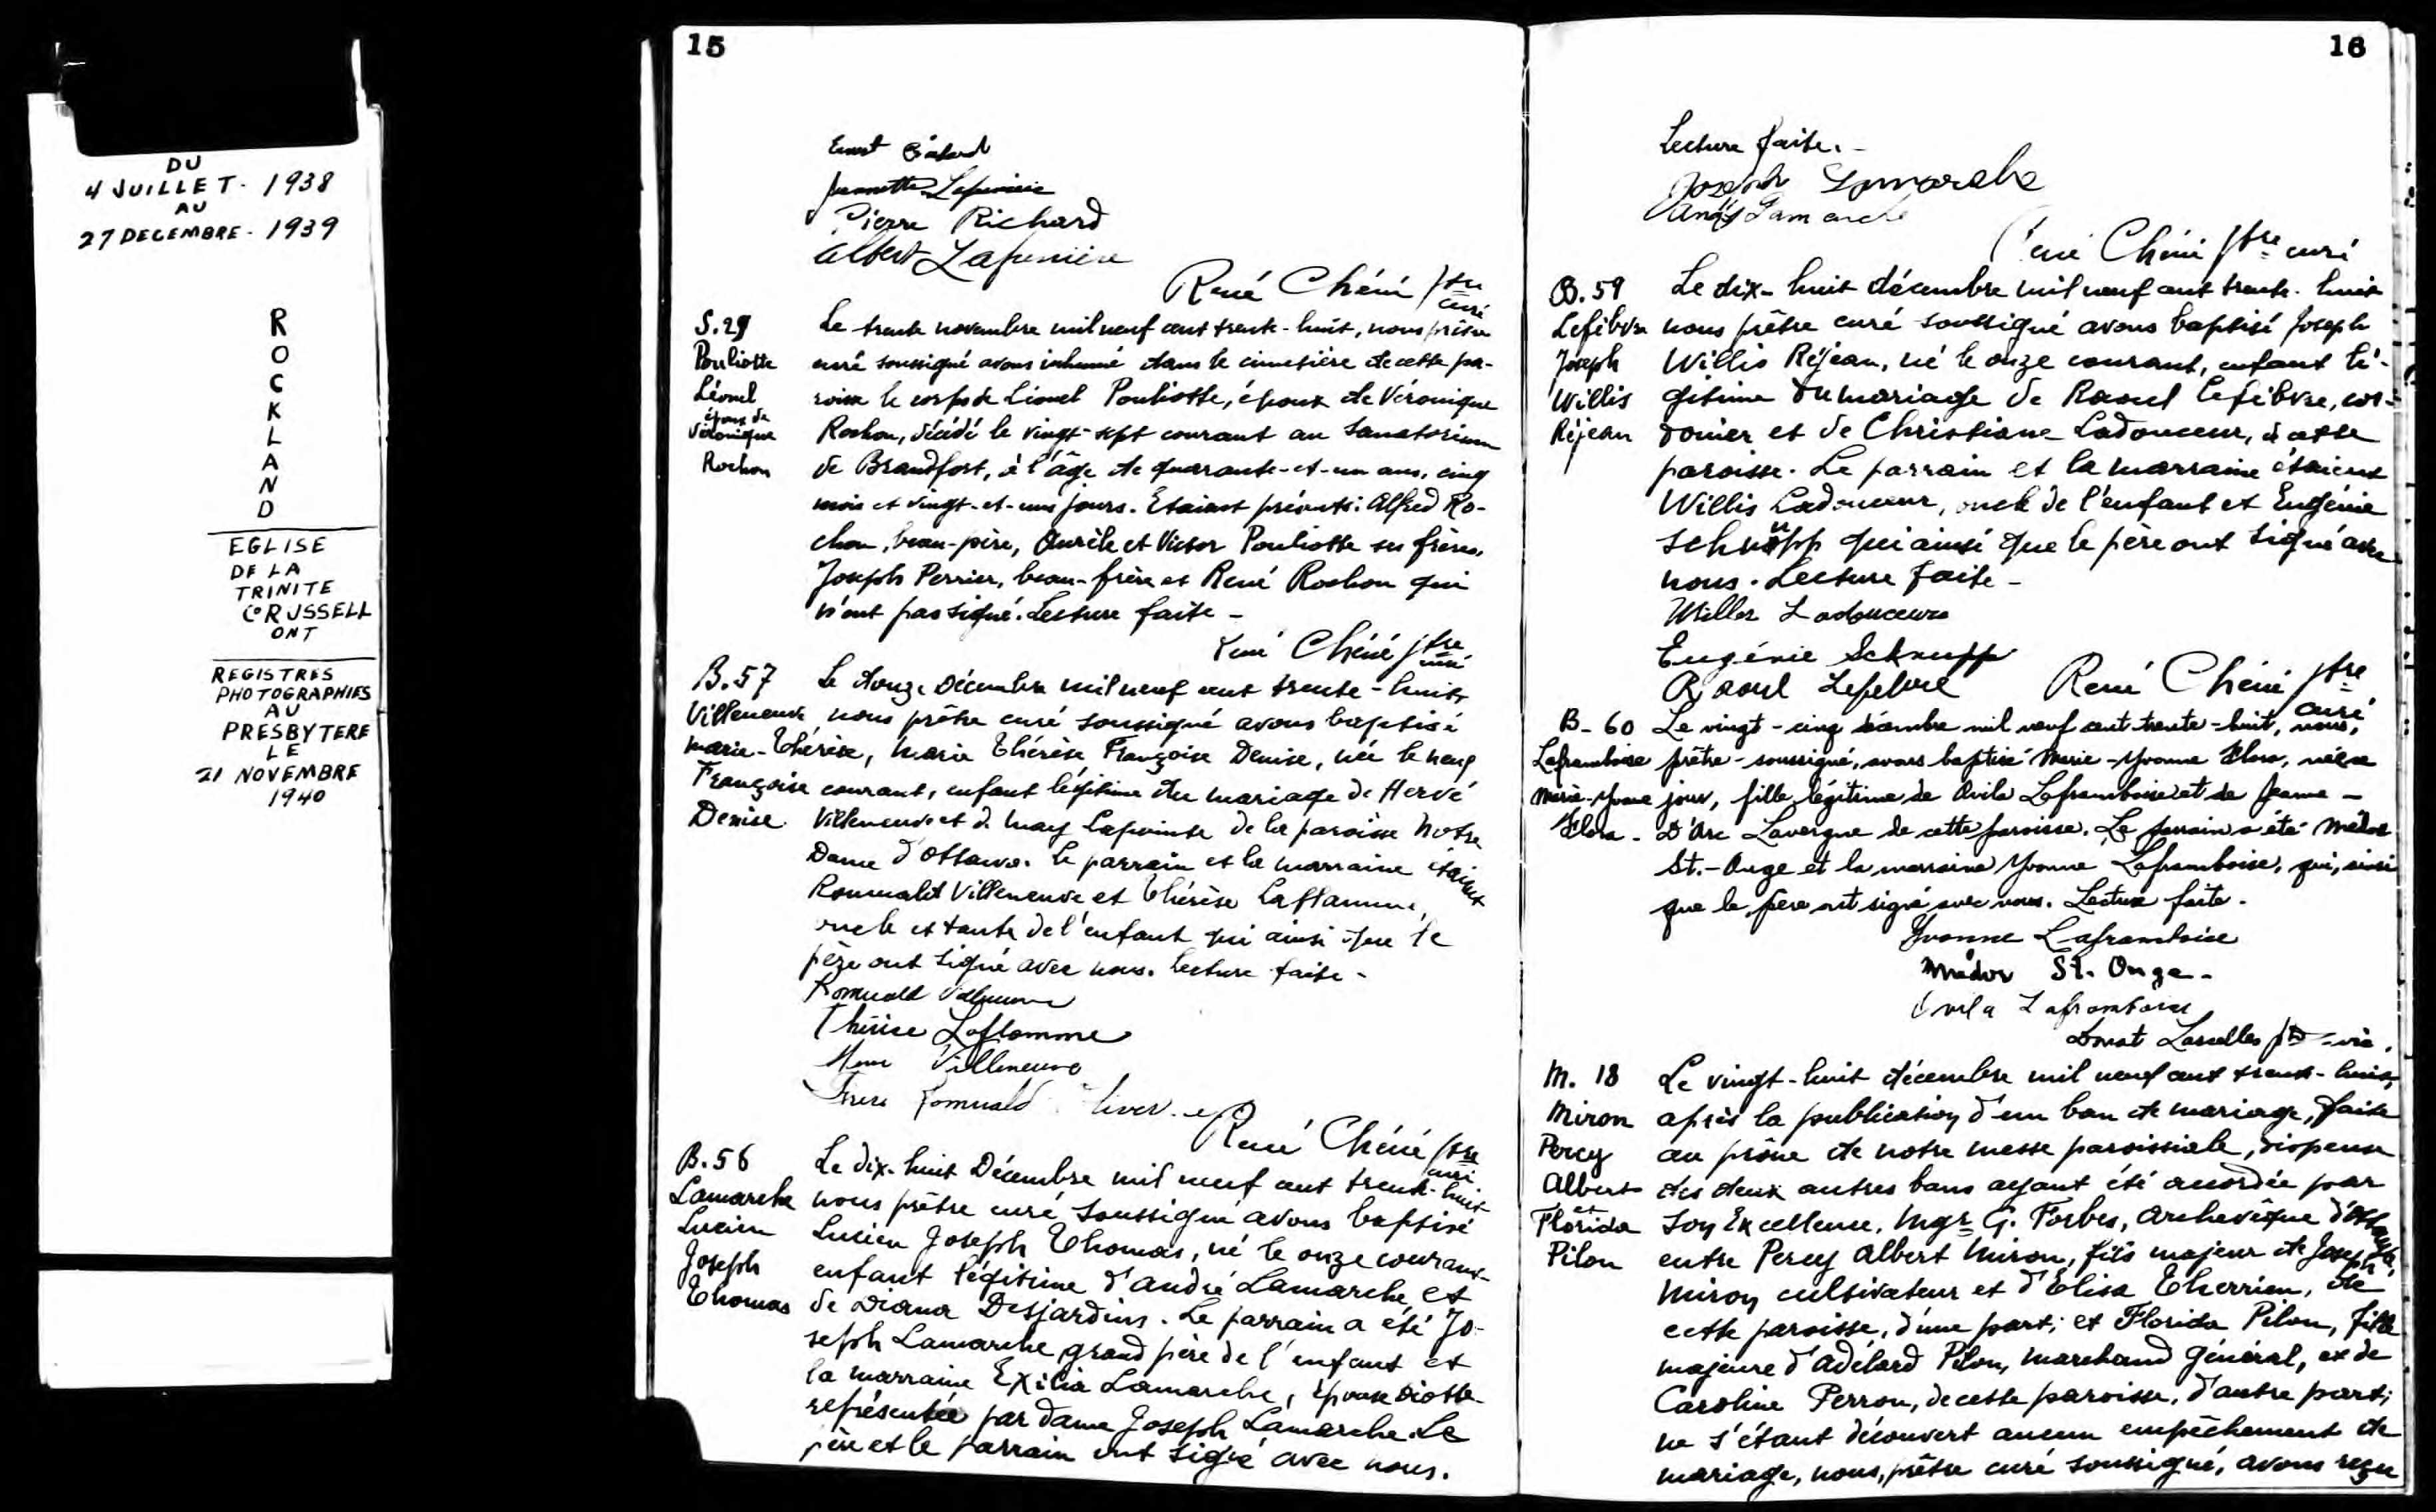 DU
4 JUILLET - 1938
AU
27 DECEMBRE - 1939
R
O
C
K
L
A
N
D
EGLISE
DE LA
TRINITE
CO RUSSELL
ONT
REGISTRES
PHOTOGRAPHIES
AU
PRESBYTERE
LE
21 NOVEMBRE
1940
15
Jeannette
Pierre Richard
Albert Lafrenière
René Chéné ptre
curé
S. 29
Pouliotte
Léonel
époux de
Véronique
Rochon
Le trente novembre mil neuf cent trente-huit, nous prêtre
curé soussigné avons inhumé dans le cimetière de cette pa-
roisse le corps de Lionel Pouliotte, époux de Véronique
Rochon, décédé le vingt-sept courant au Sanatorium
de Brandfort, à l'âge de quarante-et-un ans, cinq
mois et vingt-et-uns jours. Etaient présents: Alfred Ro-
chon, beau-père, Aurèle et Victor Pouliotte ses frères,
Joseph Perrier, beau-frère et René Rochon qui
n'ont pas signé. Lecture faite -
René Chéné ptre
curé
B. 57
Villeneuve
Marie-Thérèse,
Françoise
Denise
Le douze Décembre mil neuf cent trente-huit,
nous prêtre curé soussigné avons baptisé
Marie Thérèse Françoise Denise, née le neuf
courant, enfant légitime du mariage de Hervé
Villeneuve et d. May Lapointe de la paroisse Notre
Dame d'Ottawa. Le parrain et la marraine étaient
Romuald Villeneuve et Thérèse Laflamme,
oncle et tante de l'enfant qui ainsi que le
père ont signé avec nous. Lecture faite -
Romuald Villeneuve
Thérèse Laflamme
Villeneuve
Frère Romuald
René Chéné ptre
curé
B. 58
Lamarche
Lucien
Joseph
Thomas
Le dix-huit Décembre mil neuf cent trente-huit
nous prêtre curé soussigné avons baptisé
Lucien Joseph Thomas, né le onze courant
enfant légitime d'André Lamarche et
de Diana Desjardins. Le parrain a été Jo-
seph Lamarche grand père de l'enfant et
la marraine Exilia Lamarche, épouse
représentée par dame Joseph Lamarche. Le
père et le parrain ont signé avec nous.
16
Lecture faite. -
Joseph Lamarche
Lamarche
René Chéné ptre curé
B. 59
Lefebvre
Joseph
Willis
Réjean
Le dix-huit décembre mil neuf cent trente-huit
nous prêtre curé soussigné avons baptisé Joseph
Willis Réjean, né le onze courant, enfant lé-
gitime du mariage de Raoul Lefebvre, cor-
donier et de Christiane Ladouceur, de cette
paroisse. Le parrain et la marraine étaient
Willis Ladouceur, oncle de l'enfant et Eugénie
Schnupp qui ainsi que le père ont signé avec
nous. Lecture faite -
Willis Ladouceur
Eugénie Schnupp
Raoul Lefebvre
René Chéné ptre
curé
B - 60
Laframboise
Marie-Yvonne
Flora -
Le vingt-cinq décembre mil neuf cent trente-huit, nous,
prêtre-soussigné, avons baptisé Marie-Yvonne Flora, née ce
jour, fille légitime de Avila Laframboise et de Jeanne -
D'Arc Lavergne de cette paroisse. Le parrain a été Médor
St.-Onge et la marraine Yvonne Laframboise, qui, ainsi
que le père ont signé avec nous. Lecture faite.
Yvonne Laframboise
Médor St. Onge -
Avila Laframboise
Donat Lasselles ptre - vic.
M. 18
Miron
Percy
Albert
et
Florida
Pilon
Le vingt-huit décembre mil neuf cent trente-huit,
après la publication d'un ban de mariage, faite
au prône de notre messe paroissiale, dispense
des deux autres bans ayant été accordée par
Son Excellence, Mgr G. Forbes, archevêque d'Ottawa,
entre Percy Albert Miron, fils majeur de Joseph
Miron cultivateur et d'Elisa Therrien, de
cette paroisse, d'une part; et Florida Pilon, fille
majeure d'Adélard Pilon, marchand général, et de
Caroline Perron, de cette paroisse, d'autre part;
ne s'étant découvert aucun empêchement de
mariage, nous, prêtre curé soussigné, avons reçu